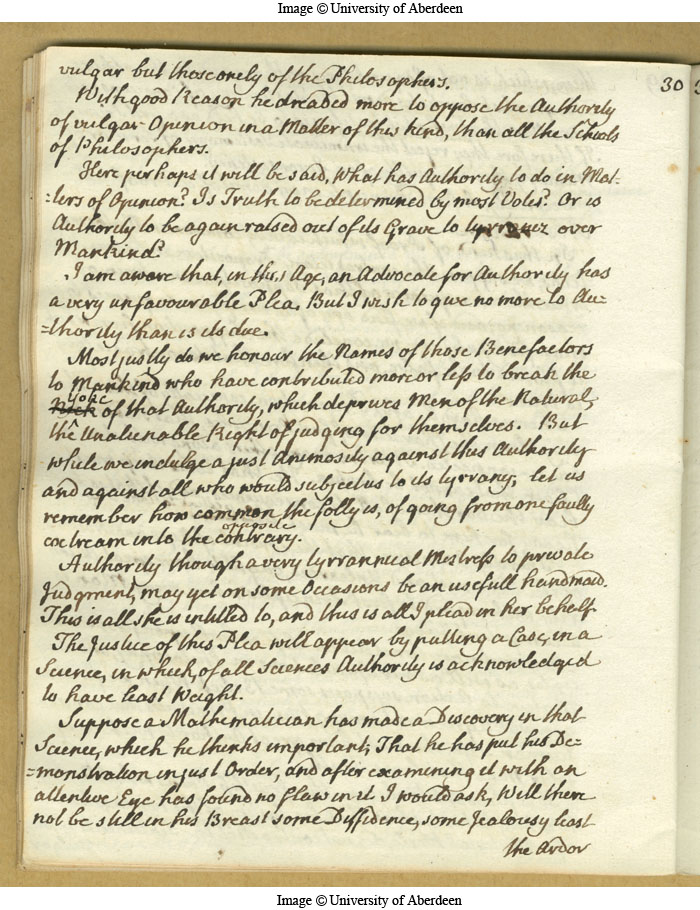 Image © University of Aberdeen
30
vulgar but those onely of the Philosophers.
With good Reason he dreaded more to oppose the Authority
of vulgar Opinion in a Matter of this kind, than all the Schools
of Philosophers.
Here perhaps it will be said, What has Authority to do in Mat-
-ters of Opinion? Is Truth to be determined by most Votes? Or is
Authority to be again raised out of its Grave to tyrranize over
Mankind?
I am aware that, in this Age, an Advocate for Authority has
a very unfavourable Plea. But I wish to give no more to Au-
-thority than is its due.
Most justly do we honour the Names of those Benefactors
to Mankind who have contributed more or less to break the
Yoke
of that Authority, which deprives Men of the Natural,
the Unalienable Right of judging for themselves. But
while we indulge a just Animosity against this Authority
and against all who would subject us to its tyrrany; let us
remember how common the folly is, of going from one faulty
opposite
extream into the contrary.
Authority though a very tyrrannical Mistress to private
Judgment, may yet on some Occasions be an usefull handmaid.
This is all she is intitled to, and this is all I plead in her behalf.
The Justice of this Plea will appear by putting a Case, in a
Science, in which, of all Sciences Authority is acknowledged
to have least Weight.
Suppose a Mathematician has made a Discovery in that
Science, which he thinks important; That he has put his De-
-monstration in just Order, and after examining it with an
attentive Eye has found no flaw in it I would ask, Will there
not be still in his Breast some Diffidence, some Jealousy least
the Ardor
Image © University of Aberdeen